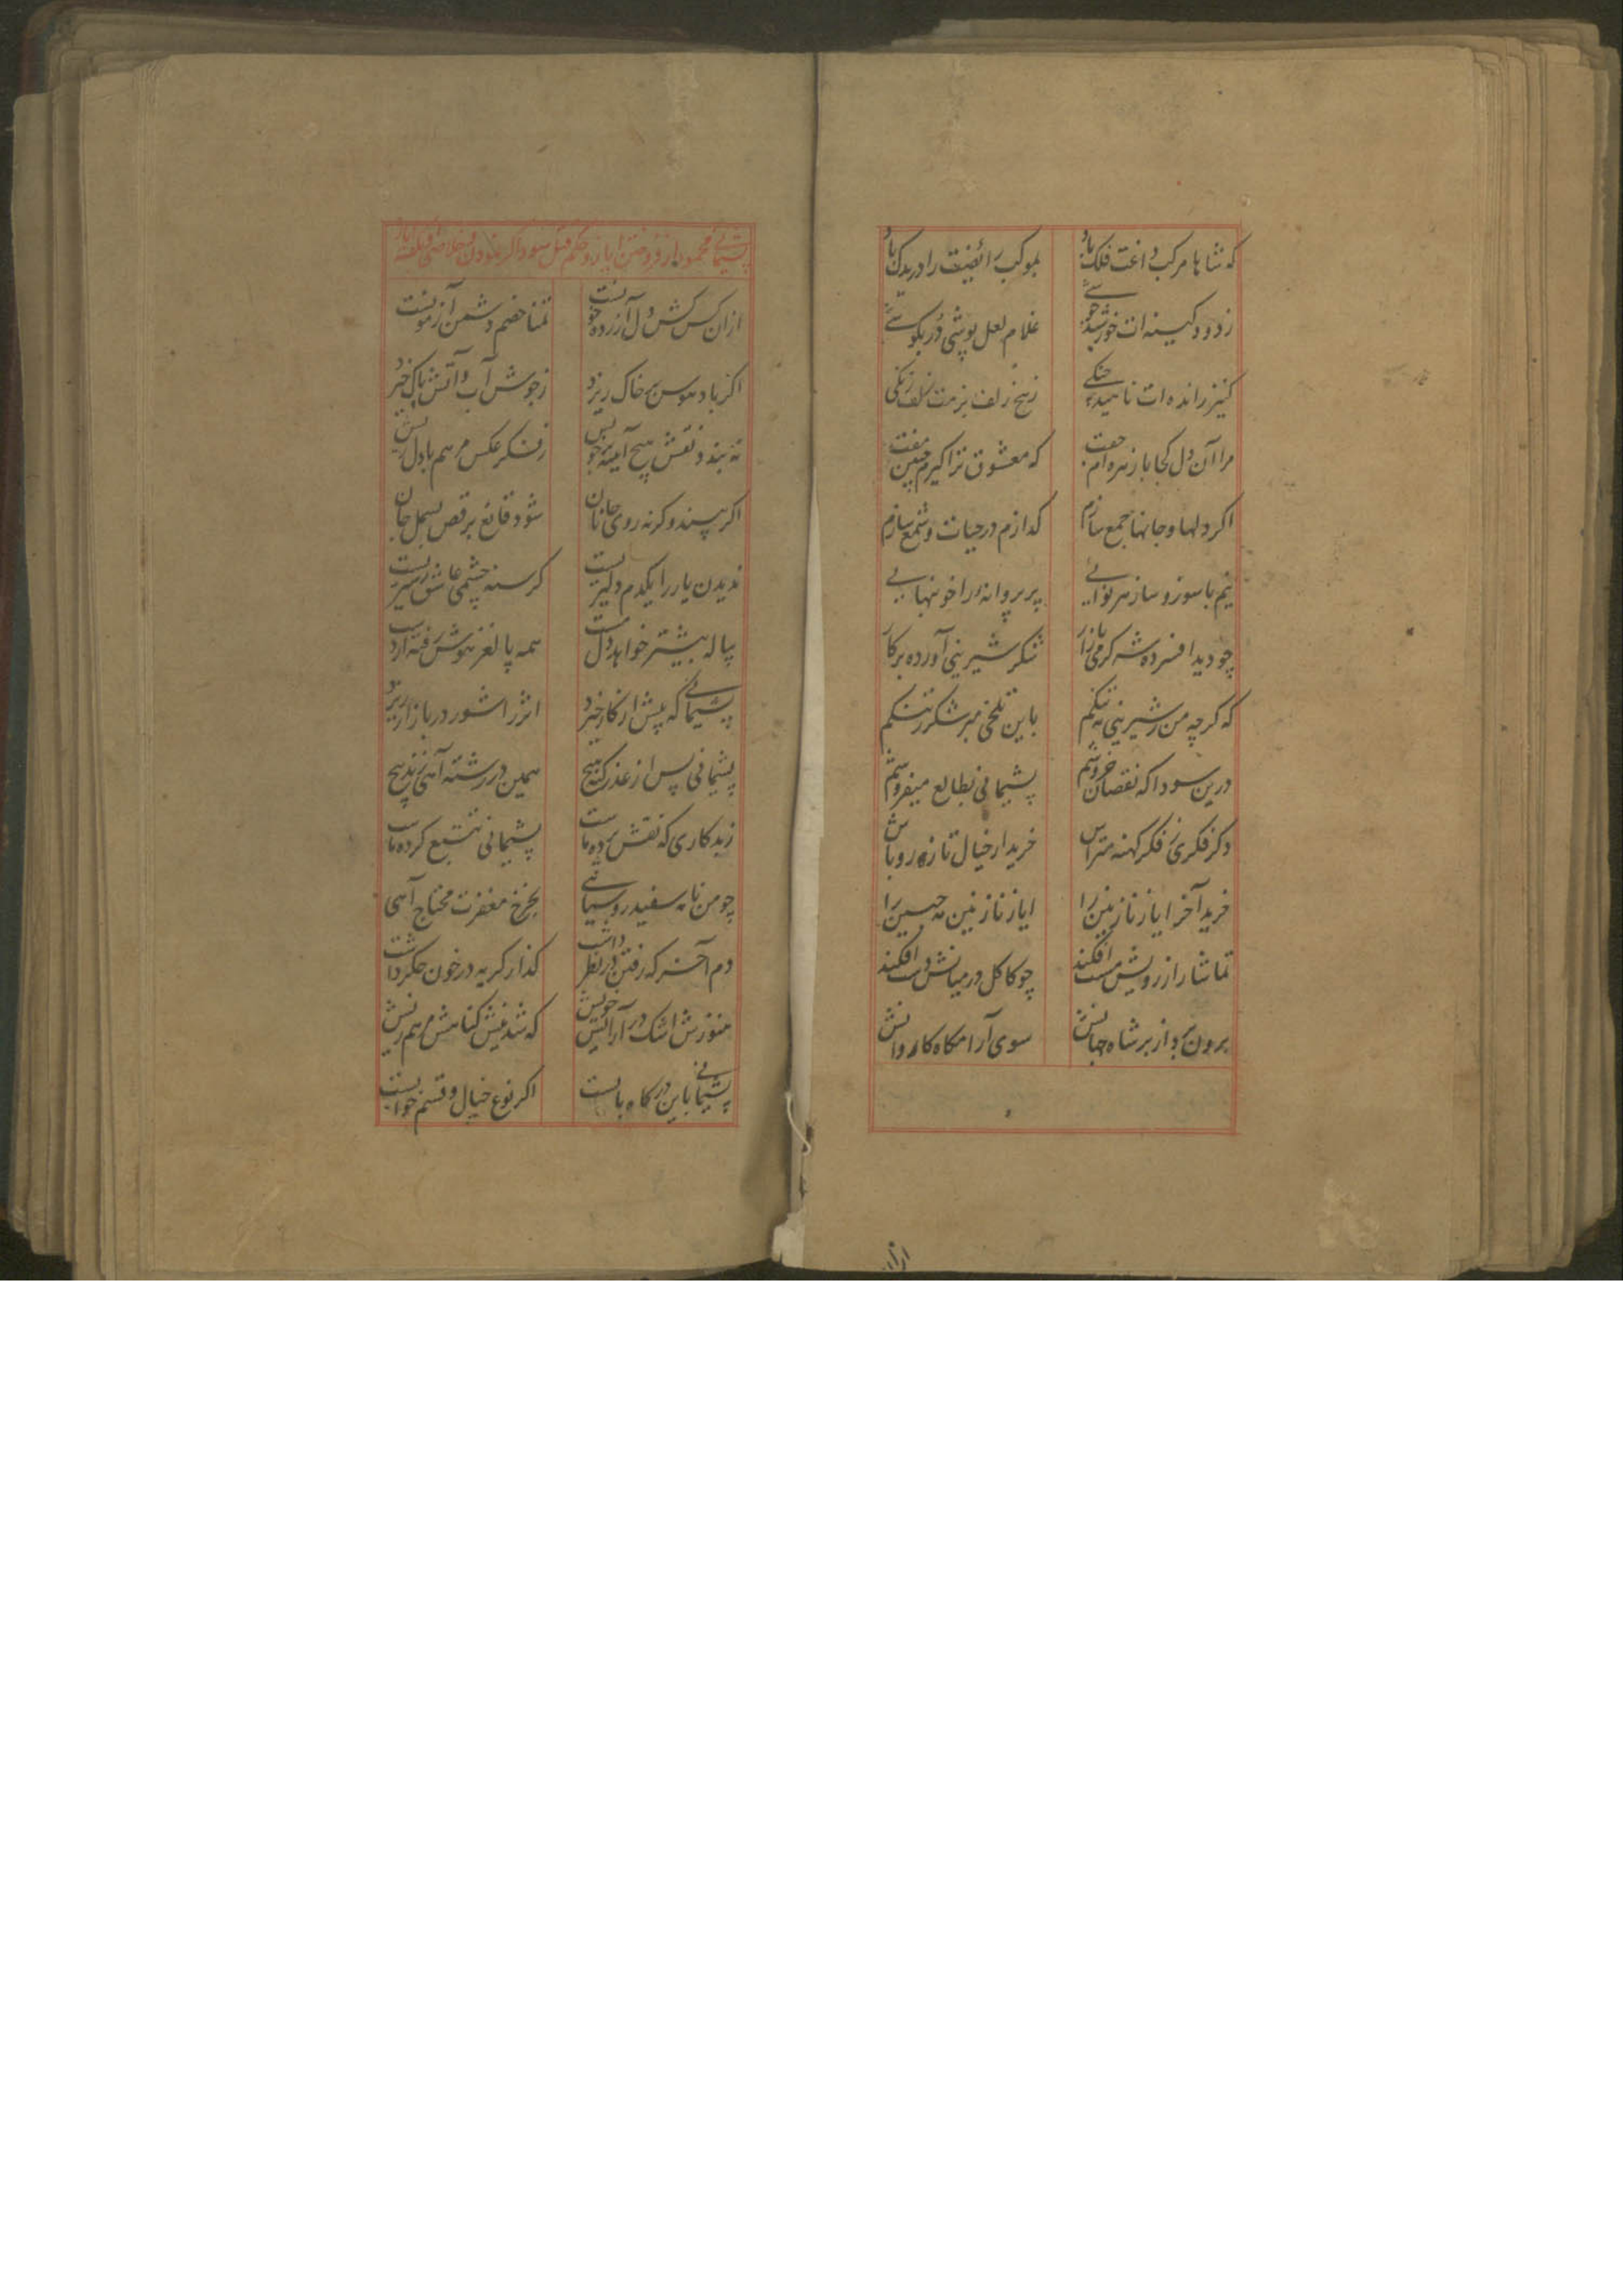 که شاها مرکب داغت فلک باد بموکب رائضیت را دریدک باد
ز دود کینه ات خورشید جوشے غلام لعل پوشی در بکوشے
کنیز رانده ات ناهید چنکے زنخ زلف بزمت زلف زنکی
مرا آن دل کجا با زهره ام جفت که معشوق ترا کیرم چنین مفت
اکر دلها و جانها جمع سازم کدازم در حیات و شمع سازم
نیم با سوز و ساز هر نوائے پر پروانه را خونبهایے
چو دید افسرده شه کرمی بازار شکر شیرینی آورده بر کار
که کرچه من ز شیرینی به تنکم باین تلخی مبر شکر ز تنکم
درین سودا که نقصان خروشم پشیمانی بطالع میفروشم
دکر فکری ز فکر کهنه متراش خریدار خیال تازه رو باش
خرید آخر ایاز نازنین را ایاز نازنین مه جبین را
تماشا را ز رویش مست افکند چو کاکل در میانش دست افکند
برون برد از بر شاه جهانش سوی آرامکاه کاروانش
ازان
پشیمانی محمود از فروختن ایاز و حکم قتل سوداکر نمودن
ازان کس کش دل آزرده جوئست تمنا خصم و دشمن آرزوئست
اکر باد هوس بر خاک ریزد ز جوش آب و آتش باک خیزد
نه بندد نقش هیچ آیینه بر جو پس ز فکر عکس مرهم با دل ریش
اکر بیند وکرنه روی جانان شود قانع برقص بسمل جان
ندیدن یار را یکدم دلیریست کرسنه چشمی عاشق ز سیریست
پیاله بیشتر خواهد دل مست همه پا لغز هوش رفته از دست
پشیمانی که پیش از کار خیزد اثر را شور در بازار ریزد
پشیمانی پس از عذر کنه هیچ همین در رشته آهی زند پیچ
ز بد کاری که نقش برده ماست پشیمانی تتبع کرده ماست
چو من نامه سفید رو سیاهے بخرخ مغفرت محتاج آهی
دم آخر که رفتن در نظر داشت کذار کریه در خون جکر داشت
هنوزش اشک در آرایش خویش که شد نیش کناهش مرهم ریش
پشیمانی باین درکاه بابست اکر نوع خیال و قسم خوابست